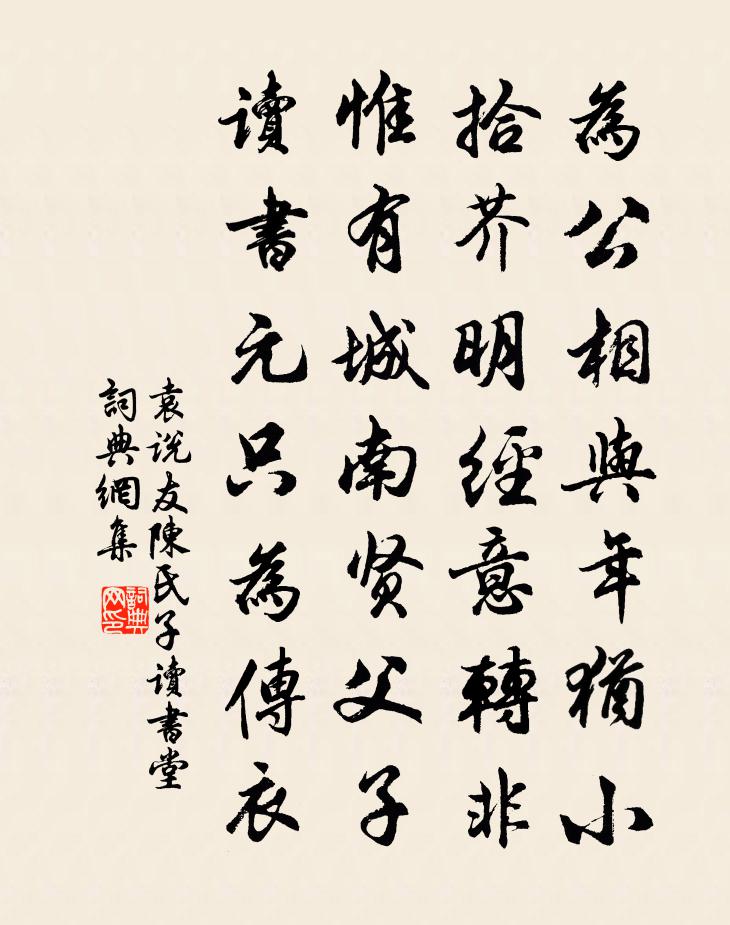 為公相與年猶小
拾芥明經意轉非
惟有城南贤父子
讀書元只為傳衣
袁说友陳氏子讀書堂
詞典網集
詞典網印